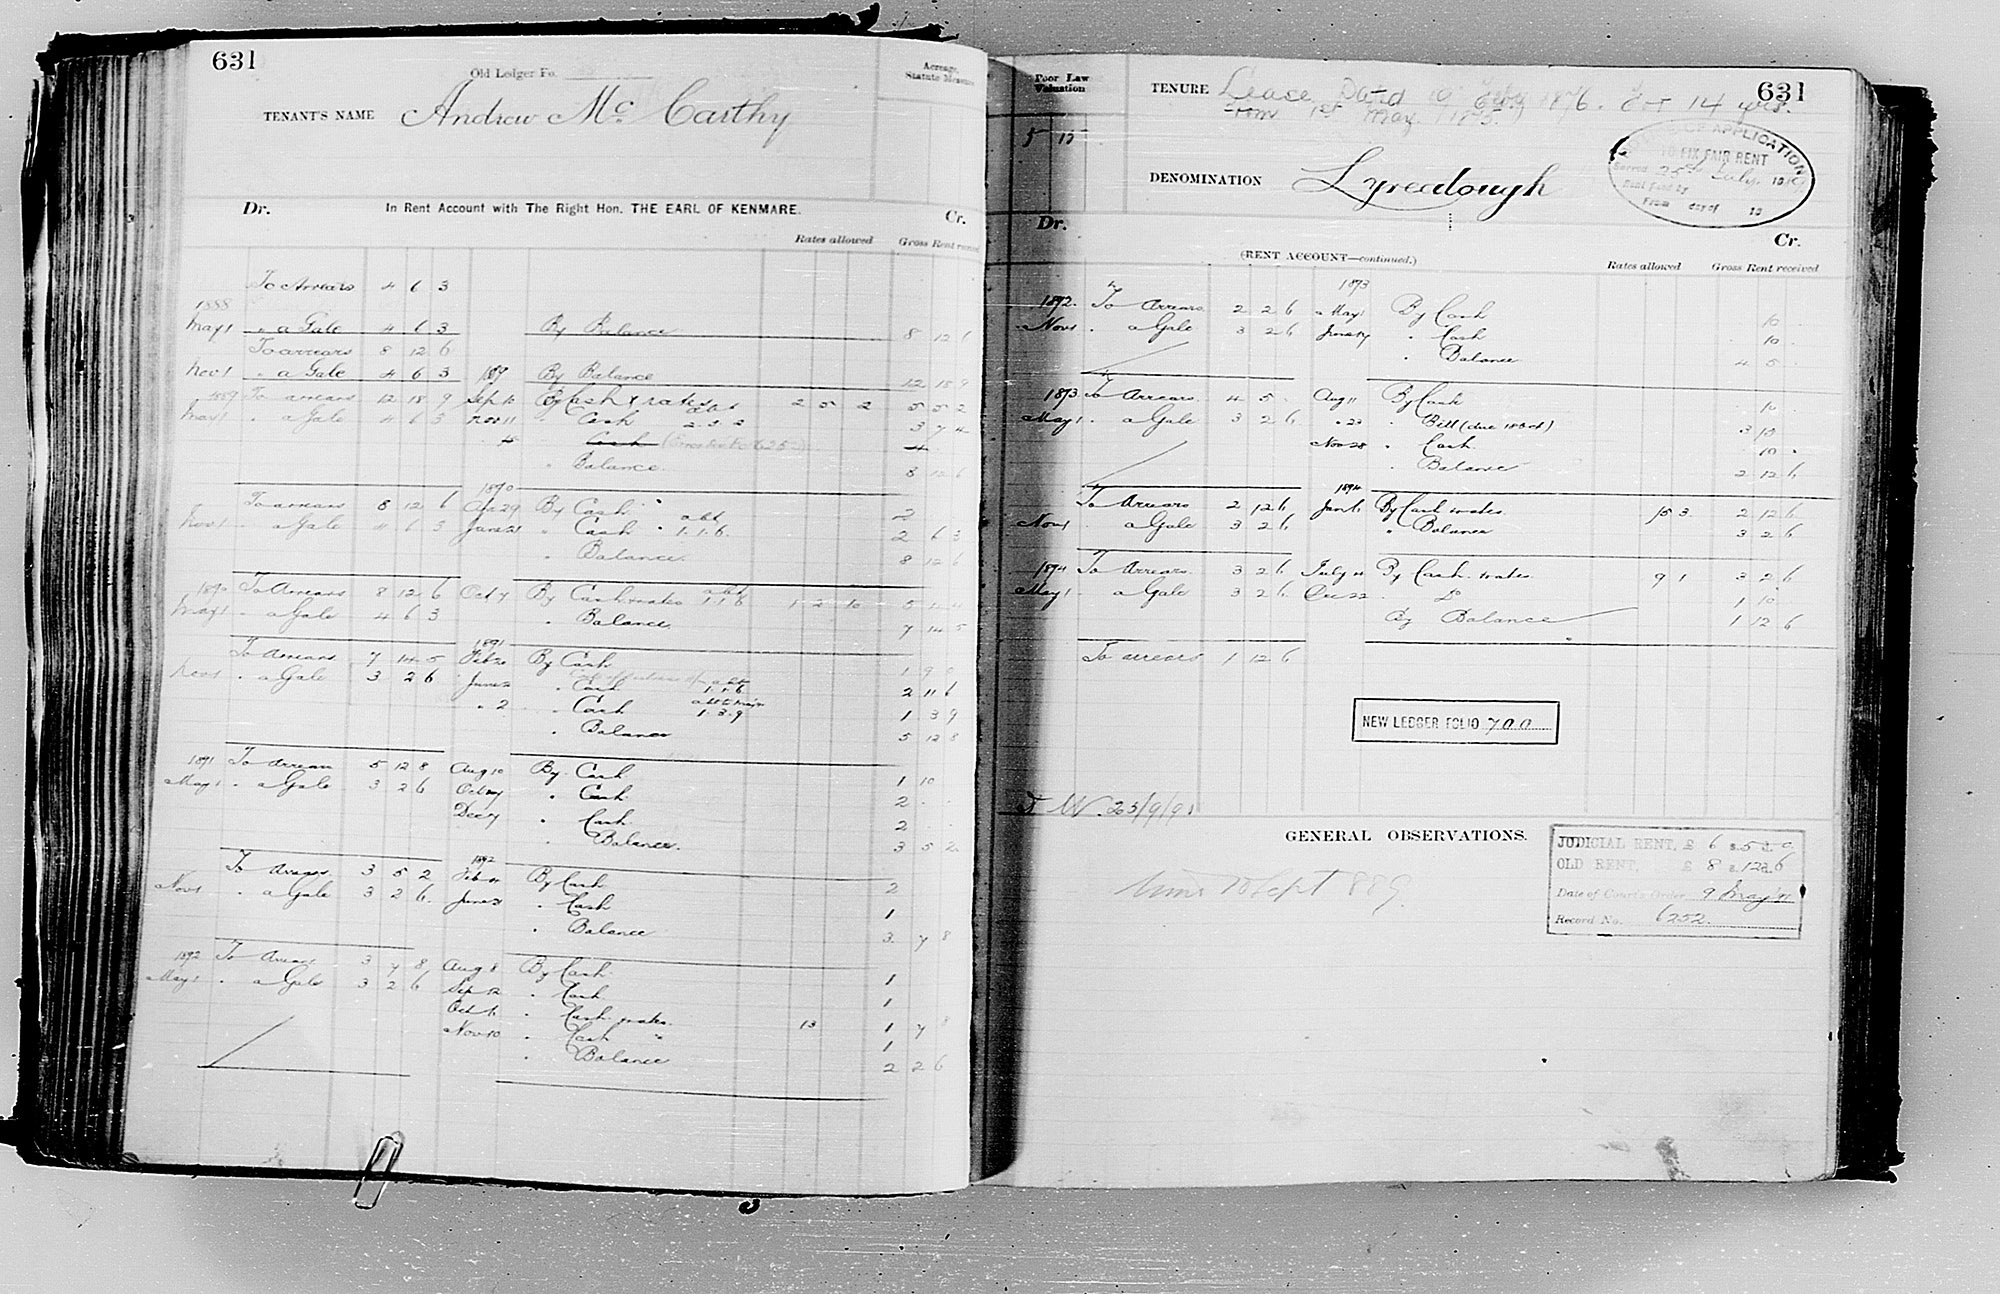 631
Old Ledger Fo.
Acreage, Statute Measure
TENANT'S NAME Andrew Mc Carthy
Dr. In Rent Account with The Right Hon. THE EARL OF KENMARE. Cr.
Rates allowed Gross Rent received
To Arrears 4 6 3
1888
May 1 " a Gale 4 6 3 By Balance 8 12 6
To arrears 8 12 6
Nov 1 " a Gale 4 6 3 By Balance 12 18 9
1889 To arrears 12 18 9 By Cash & rates 2 5 2 5 5 2
May 1 " a Gale 4 6 3 Nov 11 " Cash 3 7 4
Cash
" Balance 8 12 6
1890
To arrears 8 12 6 Apr 29 By Cash 2
Nov 1 " a Gale 4 6 3 June 21 " Cash 1.1.6 2 6 3
" Balance 8 12 6
1890 To Arrears 8 12 6 Oct 7 By Cash & rates 1.1.6 1 2 10
May 1 " a Gale 4 6 3 " Balance 7 14 5
1891
To Arrears 7 14 5 Feb 20 By Cash
Nov 1 " a Gale 3 2 6 June 2 " Cash 1.1.6 2 11 6
" 2 " Cash 1.3.9 1 3 9
" Balance 5 12 8
1891 To Arrears 5 12 8 Aug 10 By Cash 1 10
May 1 " a Gale 3 2 6 " Cash 2
Dec 7 " Cash 2
" Balance 3 5 2
1892
To Arrears 3 5 2 By Cash 2
Nov 1 " a Gale 3 2 6 June " Cash 1
" Balance 3 7 8
1892 To Arrears 3 7 8 Aug 8 By Cash 1
May 1 " a Gale 3 2 6 Sep 12 " Cash 1
Oct " Cash & rates 13 1 7 8
Nov 10 " Cash 1
" Balance 2 2 6
Poor Law Valuation
5 15
631
TENURE Lease Dated 19 Feby 1876. for 14 yrs.
from 1st May 1875.
DENOMINATION Lyreadough
APPLICATION
TO FIX FAIR RENT
Served 25th July 18
From day of 18
Dr. Cr.
(RENT ACCOUNT—continued.)
Rates allowed Gross Rent received
1893
1892. To Arrears 2 2 6 May 1 By Cash 10
Nov 1 " a Gale 3 2 6 June " Cash 10
" Balance 4 5
1893 To Arrears 4 5 Aug 11 By Cash 10
May 1 " a Gale 3 2 6 " 23 " Bill (due 18 Oct) 3 10
Nov 28 " Cash 10
" Balance 2 12 6
1894
To Arrears 2 12 6 Jan 6 By Cash & rates 2 12 6
Nov 1 " a Gale 3 2 6 " Balance 3 2 6
1894 To Arrears 3 2 6 July By Cash & rates 9 1 3 2 6
May 1 " a Gale 3 2 6 Dec 22 " Do 1 10
By Balance 1 12 6
To arrears 1 12 6
NEW LEDGER FOLIO 700
W. 23/9/91
GENERAL OBSERVATIONS.
JUDICIAL RENT, £ 6 s. 5 d. 0
OLD RENT, £ 8 s. 12 d. 6
Date of Court's Order 9 May 91
Record No. 6252.
Sept 1889.